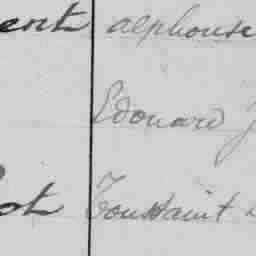 ent alphonse
Edouard J
ot Toussaint